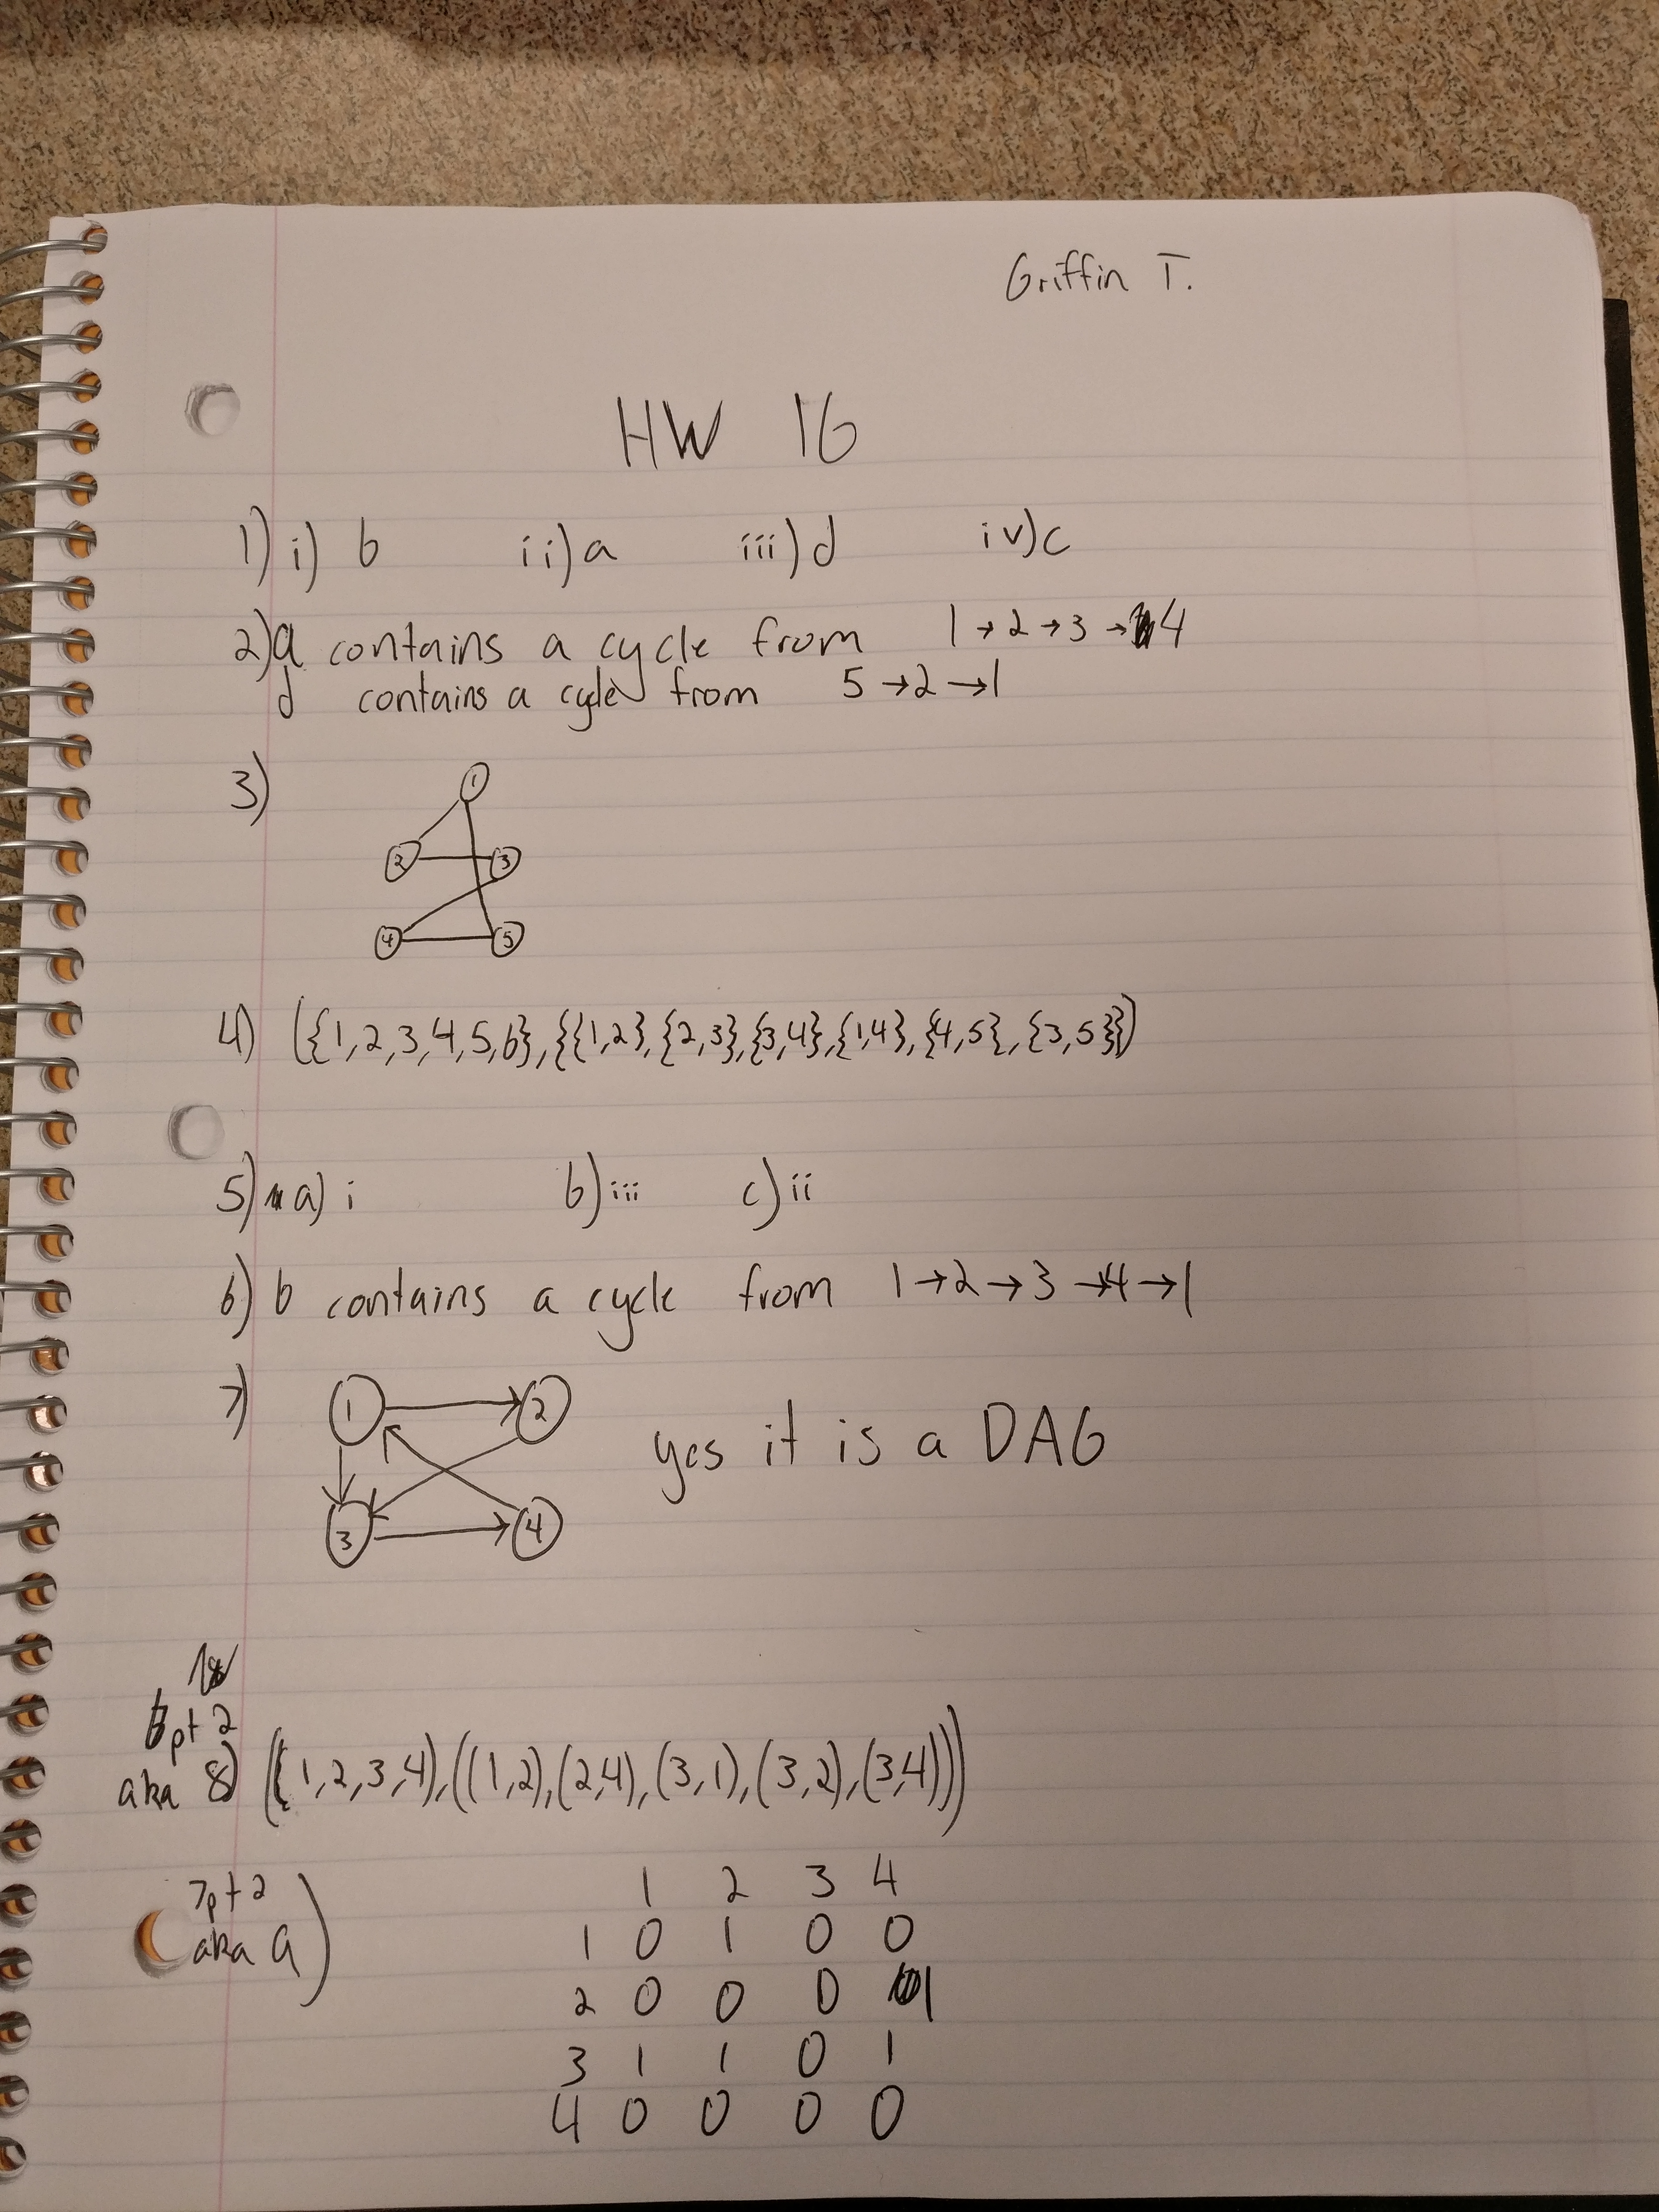 Griffin T.
HW 16
1) i) b ii) a iii) d iv) c
2) a contains a cycle from 1→2→3→4
d contains a cycle from 5→2→1
3)
1
2 3
4 5
4) ({1,2,3,4,5,6},{{1,2},{2,3},{3,4},{1,4},{4,5},{3,5}})
5) a) i b) iii c) ii
6) b contains a cycle from 1→2→3→4→1
7) 1 2 yes it is a DAG
3 4
6pt 2
aka 8) ((1,2,3,4),((1,2),(2,4),(3,1),(3,2),(3,4)))
7pt 2
aka 9)
1 2 3 4
1 0 1 0 0
2 0 0 0 1
3 1 1 0 1
4 0 0 0 0